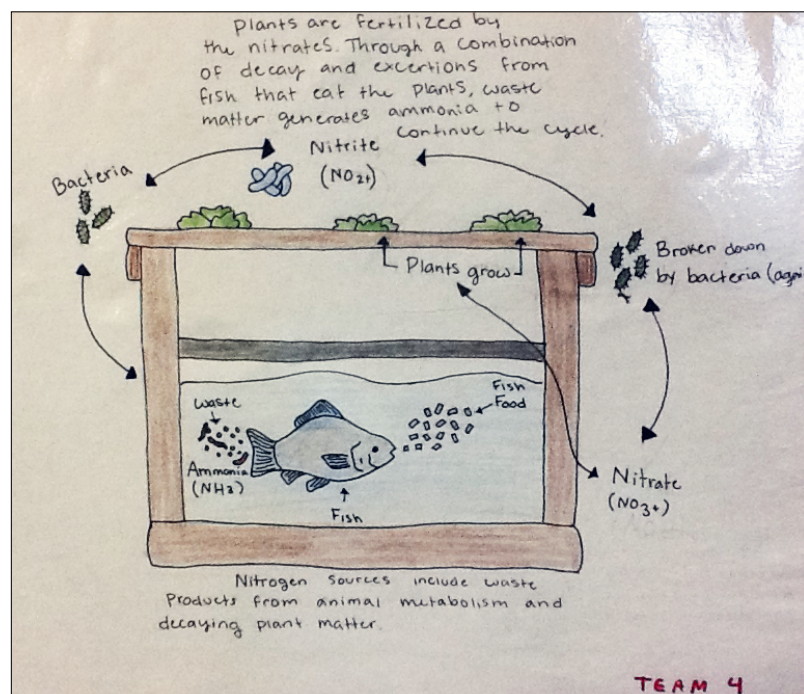 Plants are fertilized by
the nitrates. Through a combination
of decay and excertions from
fish that eat the plants, waste
matter generates ammonia to
continue the cycle.
Nitrite
(NO2+)
Bacteria
Broken down
by bacteria (agai
Plants grow
Waste
Fish
Food
Ammonia
(NH3)
Fish
Nitrate
(NO3+)
Nitrogen sources include waste
Products from animal metabolism and
decaying plant matter.
TEAM 4